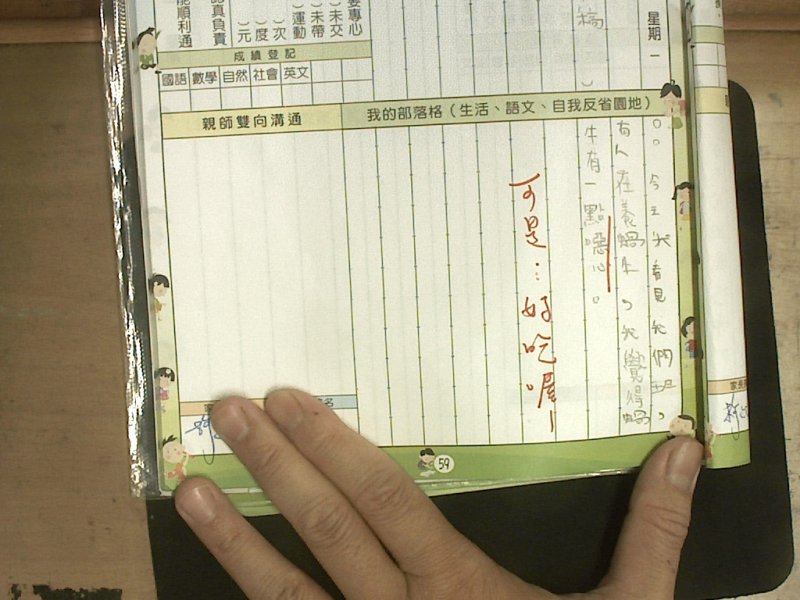 星期一
稿
要專心
）未交
）未帶
）運動
）次
）度
）元
認真負責
能順利通
成績登記
國語 數學 自然 社會 英文
親師雙向溝通
我的部落格（生活、語文、自我反省園地）
。。今天我看見我們班，
有人在養蝸牛，我覺得蝸
牛有一點噁心。
可是…好吃喔！
名
59